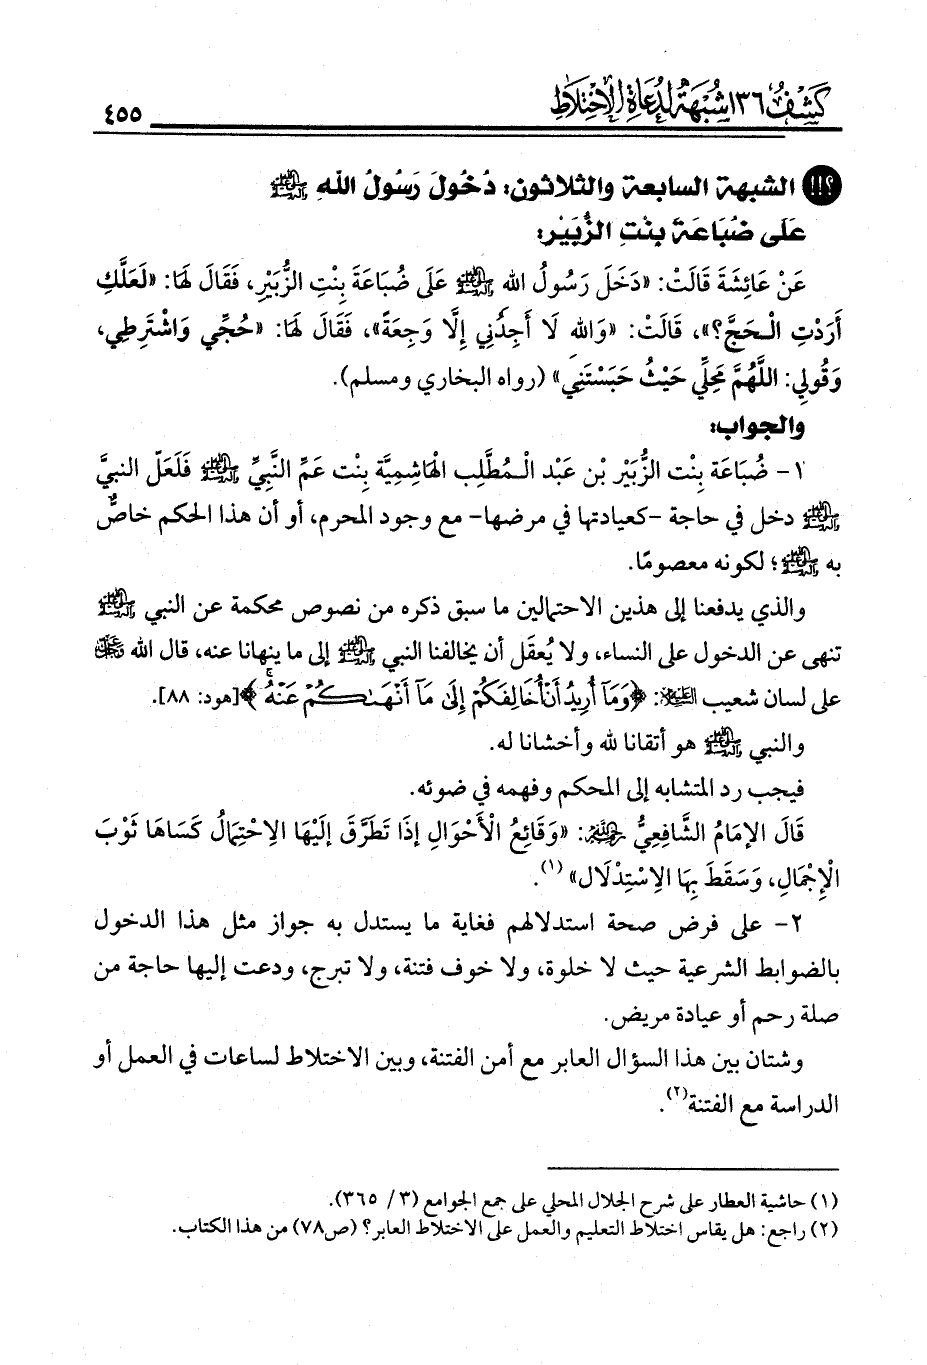 كَشْفُ ١٣٦ شُبْهَةً لِدُعَاةِ الِاخْتِلَاطِ
٤٥٥
؟!! الشبهة السابعة والثلاثون: دُخُولَ رَسُولُ اللهِ ﷺ
عَلَى ضُبَاعَةَ بِنْتِ الزُّبَيْرِ:
عَنْ عَائِشَةَ قَالَتْ: «دَخَلَ رَسُولُ الله ﷺ عَلَى ضُبَاعَةَ بِنْتِ الزُّبَيْرِ، فَقَالَ لَهَا: «لَعَلَّكِ
أَرَدْتِ الْـحَجَّ؟»، قَالَتْ: «وَالله لَا أَجِدُنِي إِلَّا وَجِعَةً»، فَقَالَ لَهَا: «حُجِّي وَاشْتَرِطِي،
وَقُولِي: اللَّهُمَّ مَحِلِّي حَيْثُ حَبَسْتَنِي» (رواه البخاري ومسلم).
والجواب:
١- ضُبَاعَة بِنْت الزُّبَيْر بْن عَبْد الْـمُطَّلِب الْهَاشِمِيَّة بِنْت عَمِّ النَّبِيِّ ﷺ فَلَعَلّ النبيَّ
ﷺ دخل في حاجة -كعيادتها في مرضها- مع وجود المحرم، أو أن هذا الحكم خاصٌّ
به ﷺ؛ لكونه معصومًا.
والذي يدفعنا إلى هذين الاحتمالين ما سبق ذكره من نصوص محكمة عن النبي ﷺ
تنهى عن الدخول على النساء، ولا يُعقَل أن يخالفنا النبي ﷺ إلى ما ينهانا عنه، قال الله ﷻ
على لسان شعيب عليه السلام: ﴿وَمَآ أُرِيدُ أَنْ أُخَالِفَكُمْ إِلَىٰ مَآ أَنْهَىٰكُمْ عَنْهُ﴾ [هود: ٨٨].
والنبي ﷺ هو أتقانا لله وأخشانا له.
فيجب رد المتشابه إلى المحكم وفهمه في ضوئه.
قَالَ الإِمَامُ الشَّافِعِيُّ رحمه الله: «وَقَائِعُ الْأَحْوَالِ إِذَا تَطَرَّقَ إِلَيْهَا الِاحْتِمَالُ كَسَاهَا ثَوْبَ
الْإِجْمَالِ، وَسَقَطَ بِهَا الِاسْتِدْلَال» (١).
٢- على فرض صحة استدلالهم فغاية ما يستدل به جواز مثل هذا الدخول
بالضوابط الشرعية حيث لا خلوة، ولا خوف فتنة، ولا تبرج، ودعت إليها حاجة من
صلة رحم أو عيادة مريض.
وشتان بين هذا السؤال العابر مع أمن الفتنة، وبين الاختلاط لساعات في العمل أو
الدراسة مع الفتنة(٢).
(١) حاشية العطار على شرح الجلال المحلي على جمع الجوامع (٣/ ٣٦٥).
(٢) راجع: هل يقاس اختلاط التعليم والعمل على الاختلاط العابر؟ (ص٧٨) من هذا الكتاب.